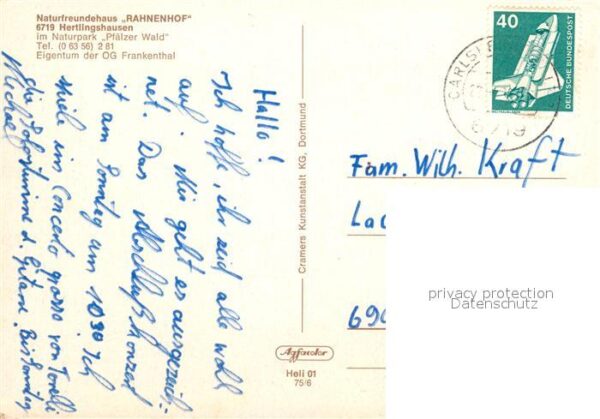 Naturfreundehaus „RAHNENHOF"
6719 Hertlingshausen
im Naturpark „Pfälzer Wald"
Tel. (0 63 56) 2 81
Eigentum der OG Frankenthal
Hallo!
Ich hoffe, ihr seid alle wohl
auf. Mir geht es ausgezeich-
net. Das Abschlußkonzert
ist am Sonntag um 10³⁰. Ich
spiele im Concerto grosso von Torelli
die Solostimme d. Gitarre. Bis Sonntag
Michael
Cramers Kunstanstalt KG, Dortmund
Agfacolor
Heli 01
75/6
40
DEUTSCHE BUNDESPOST
CARLSB
6719
Fam. Wilh. Kraft
La
690
privacy protection
Datenschutz